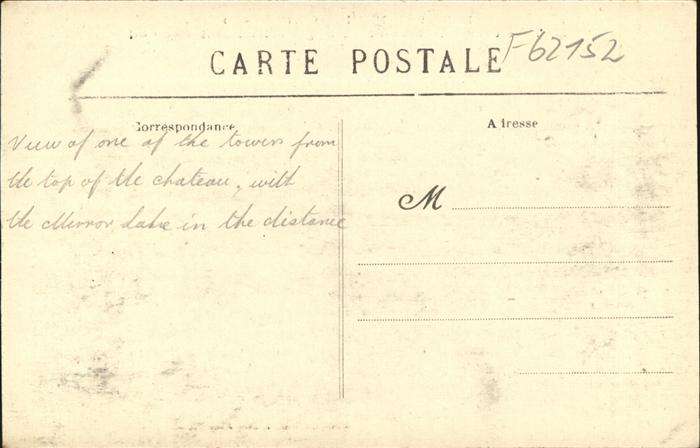 CARTE POSTALE
F62152
Correspondance
Adresse
View of one of the towers from
the top of the chateau, with
the Mirror Lake in the distance
M